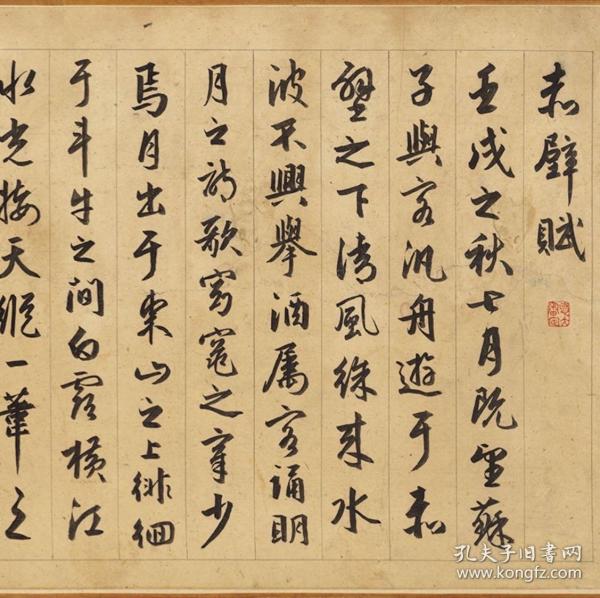 赤壁賦
壬戌之秋七月既望蘇
子與客汎舟遊于赤
壁之下清風徐来水
波不興舉酒属客誦明
月之詩歌窈窕之章少
焉月出于東山之上徘徊
于斗牛之間白露橫江
水光接天縱一葦之
孔夫子旧书网
www.kongfz.com